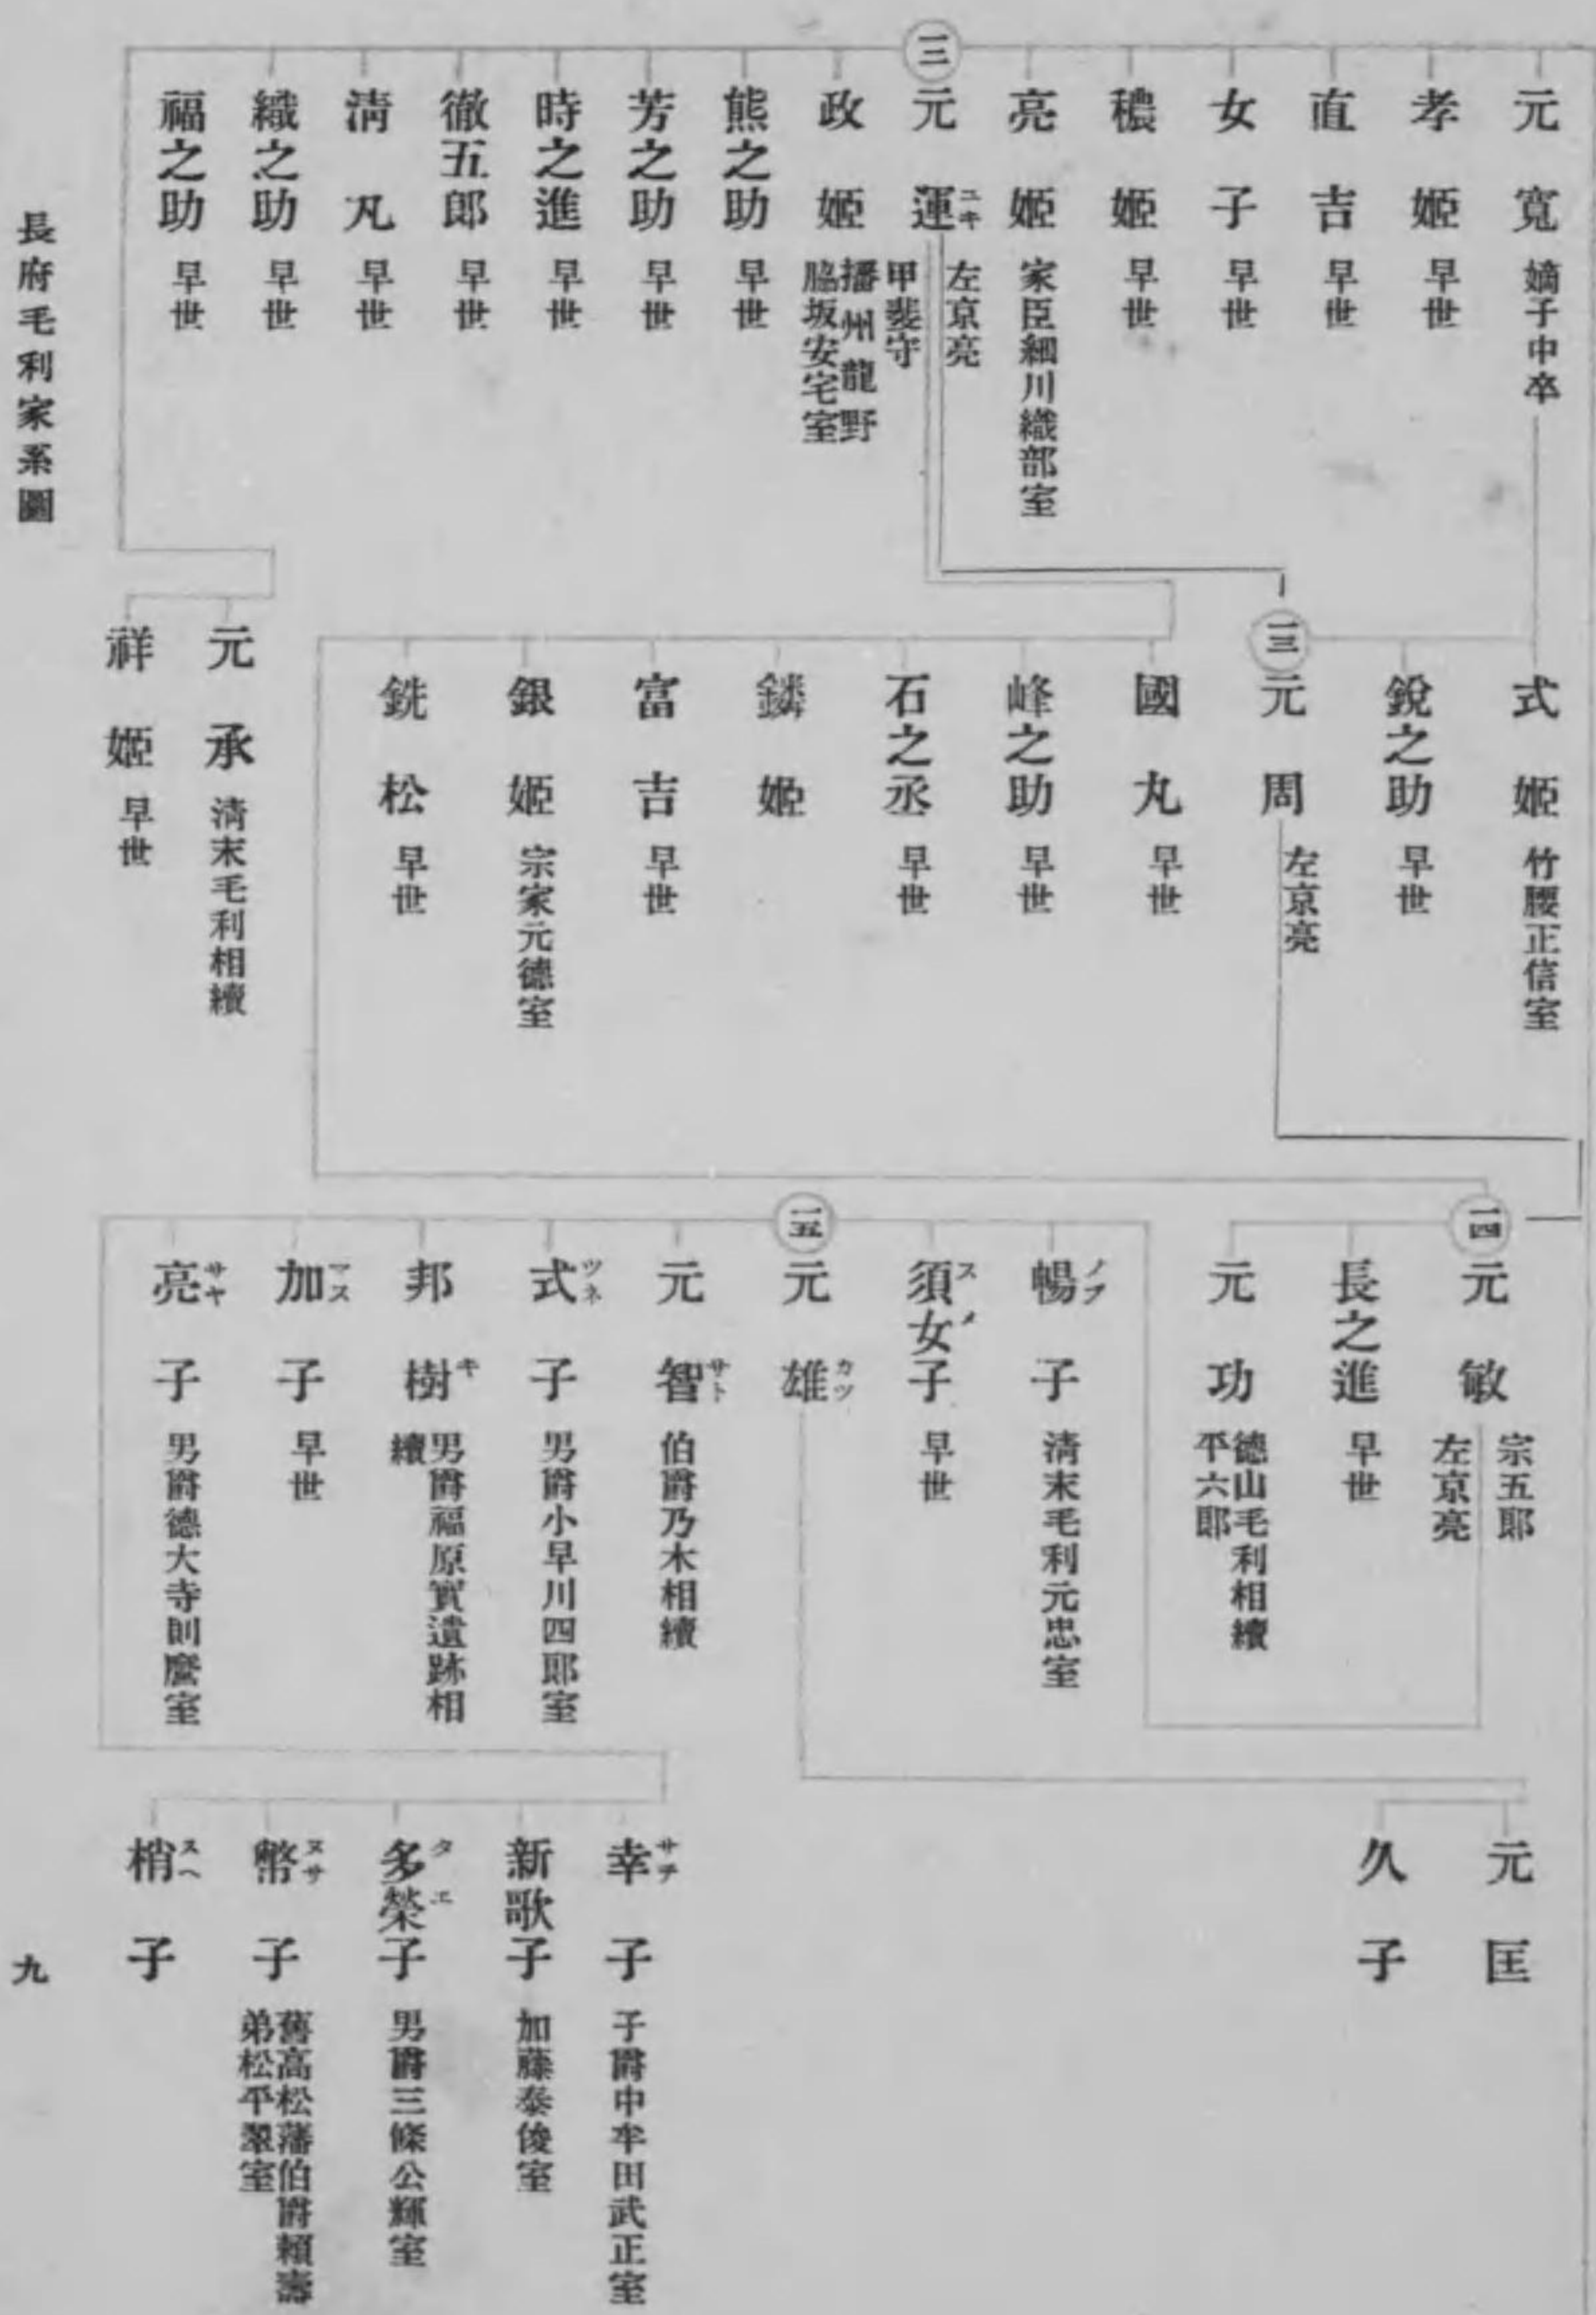 元寛 嫡子中卒
孝姫 早世
直吉 早世
女子 早世
穠姫 早世
亮姫 家臣細川織部室
元運 ユキ 左京亮
甲斐守
政姫 播州龍野
脇坂安宅室
熊之助 早世
芳之助 早世
時之進 早世
徹五郎 早世
淸凡 早世
織之助 早世
福之助 早世
式姫 竹腰正信室
銳之助 早世
一三
元周 左京亮
國丸 早世
峰之助 早世
石之丞 早世
鏻姫
富吉 早世
銀姫 宗家元德室
銑松 早世
元承 淸末毛利相續
祥姫 早世
一四
元敏 宗五郎
左京亮
長之進 早世
元功 德山毛利相續
平六郎
暢子 ノブ 淸末毛利元忠室
須女子 スメ 早世
一五
元雄 カツ
元智 サト 伯爵乃木相續
式子 ツネ 男爵小早川四郎室
邦樹 キ 男爵福原實遺跡相
續
加子 マス 早世
亮子 サヤ 男爵德大寺則麿室
元匡
久子
幸子 サチ 子爵中牟田武正室
新歌子 加藤泰俊室
多榮子 タエ 男爵三條公輝室
幣子 ヌサ 舊高松藩伯爵賴壽
弟松平翠室
梢子 スヘ
長府毛利家系圖
九